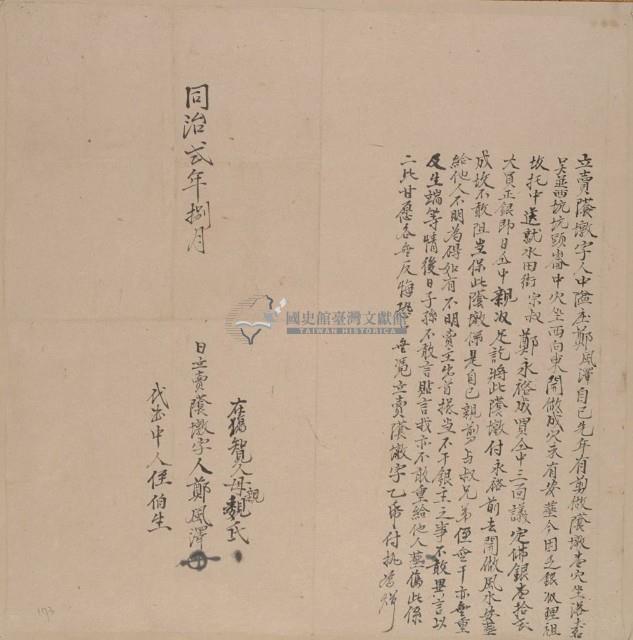 立賣廕墩字人中隘庄鄭風澤自己先年有剪做廕墩壱穴坐落土名
吳並西坑坑頭崙中穴坐西向東開做成穴未有安葬今因乏銀収理祖
坟托中送就水田街宗叔鄭永裕成買仝中三面議定佛銀壱拾弍
大員正銀即日仝中親収足訖將此廕墩付永裕前去開做風水安葬
成坟不敢阻当保此廕墩係是自己親剪与叔兄弟侄無干亦無重
給他人不明為碍如有不明賣主出首抵当不干銀主之事不敢異言以
及生端等情後日子孫不敢言貼言找亦不敢重給他人葬傷此係
二比甘愿各無反悔恐口無憑立賣廕墩字乙帋付執為炤
同治弍年捌月
在塲知見人母親魏氏
日立賣廕墩字人鄭風澤
代書中人侄伯生
國史館臺灣文獻館
TAIWAN HISTORICA
193